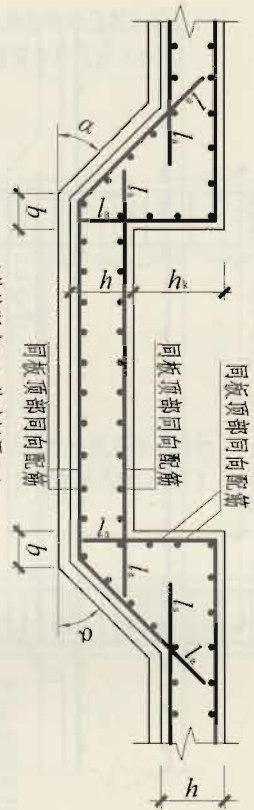 α
lₐ
lₐ
lₐ
lₐ
b
h
hₖ
同板顶部同向配筋
同板顶部同向配筋
同板顶部同向配筋
lₐ
lₐ
lₐ
lₐ
b
α
h